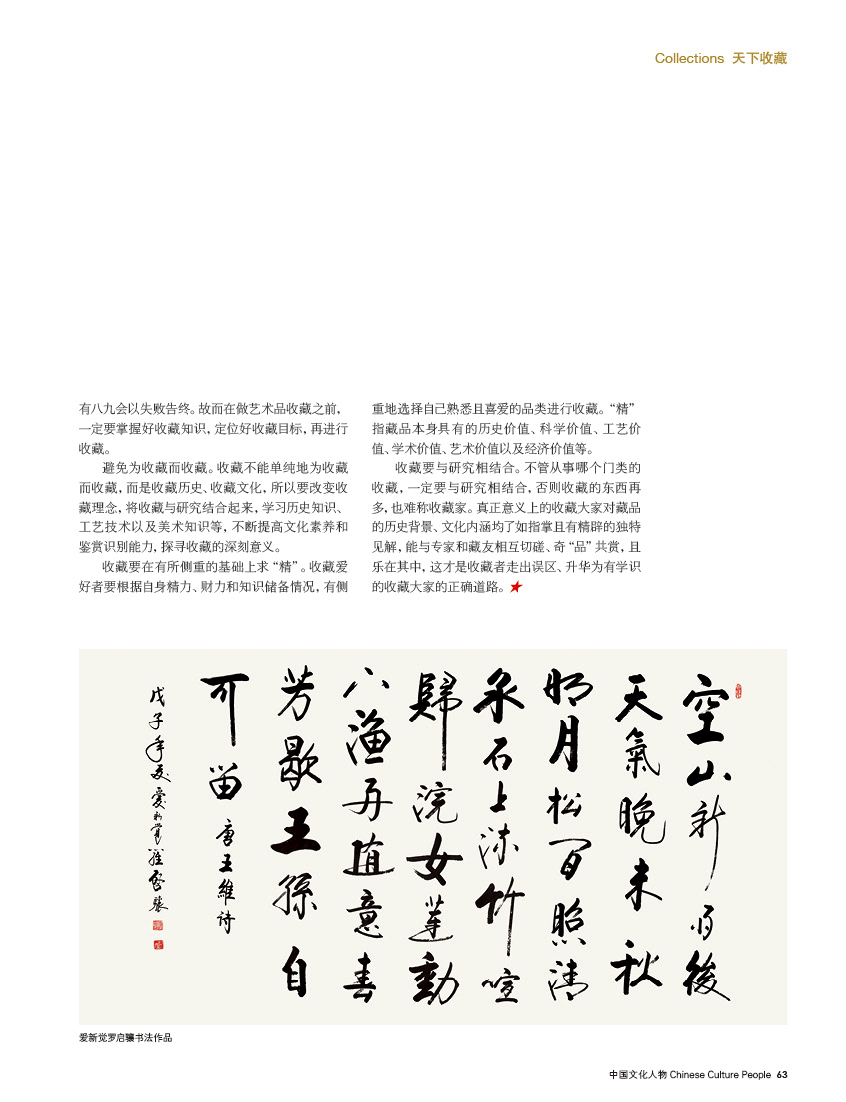 Collections 天下收藏
有八九会以失败告终。故而在做艺术品收藏之前，
一定要掌握好收藏知识，定位好收藏目标，再进行
收藏。
避免为收藏而收藏。收藏不能单纯地为收藏
而收藏，而是收藏历史、收藏文化，所以要改变收
藏理念，将收藏与研究结合起来，学习历史知识、
工艺技术以及美术知识等，不断提高文化素养和
鉴赏识别能力，探寻收藏的深刻意义。
收藏要在有所侧重的基础上求“精”。收藏爱
好者要根据自身精力、财力和知识储备情况，有侧
重地选择自己熟悉且喜爱的品类进行收藏。“精”
指藏品本身具有的历史价值、科学价值、工艺价
值、学术价值、艺术价值以及经济价值等。
收藏要与研究相结合。不管从事哪个门类的
收藏，一定要与研究相结合，否则收藏的东西再
多，也难称收藏家。真正意义上的收藏大家对藏品
的历史背景、文化内涵均了如指掌且有精辟的独特
见解，能与专家和藏友相互切磋、奇“品”共赏，且
乐在其中，这才是收藏者走出误区、升华为有学识
的收藏大家的正确道路。★
空山新雨後
天氣晚来秋
明月松间照清
泉石上流竹喧
歸浣女蓮動
下漁舟随意春
芳歇王孫自
可留 唐王維诗
戊子年夏爱新觉罗启骧
爱新觉罗启骧书法作品
中国文化人物 Chinese Culture People 63